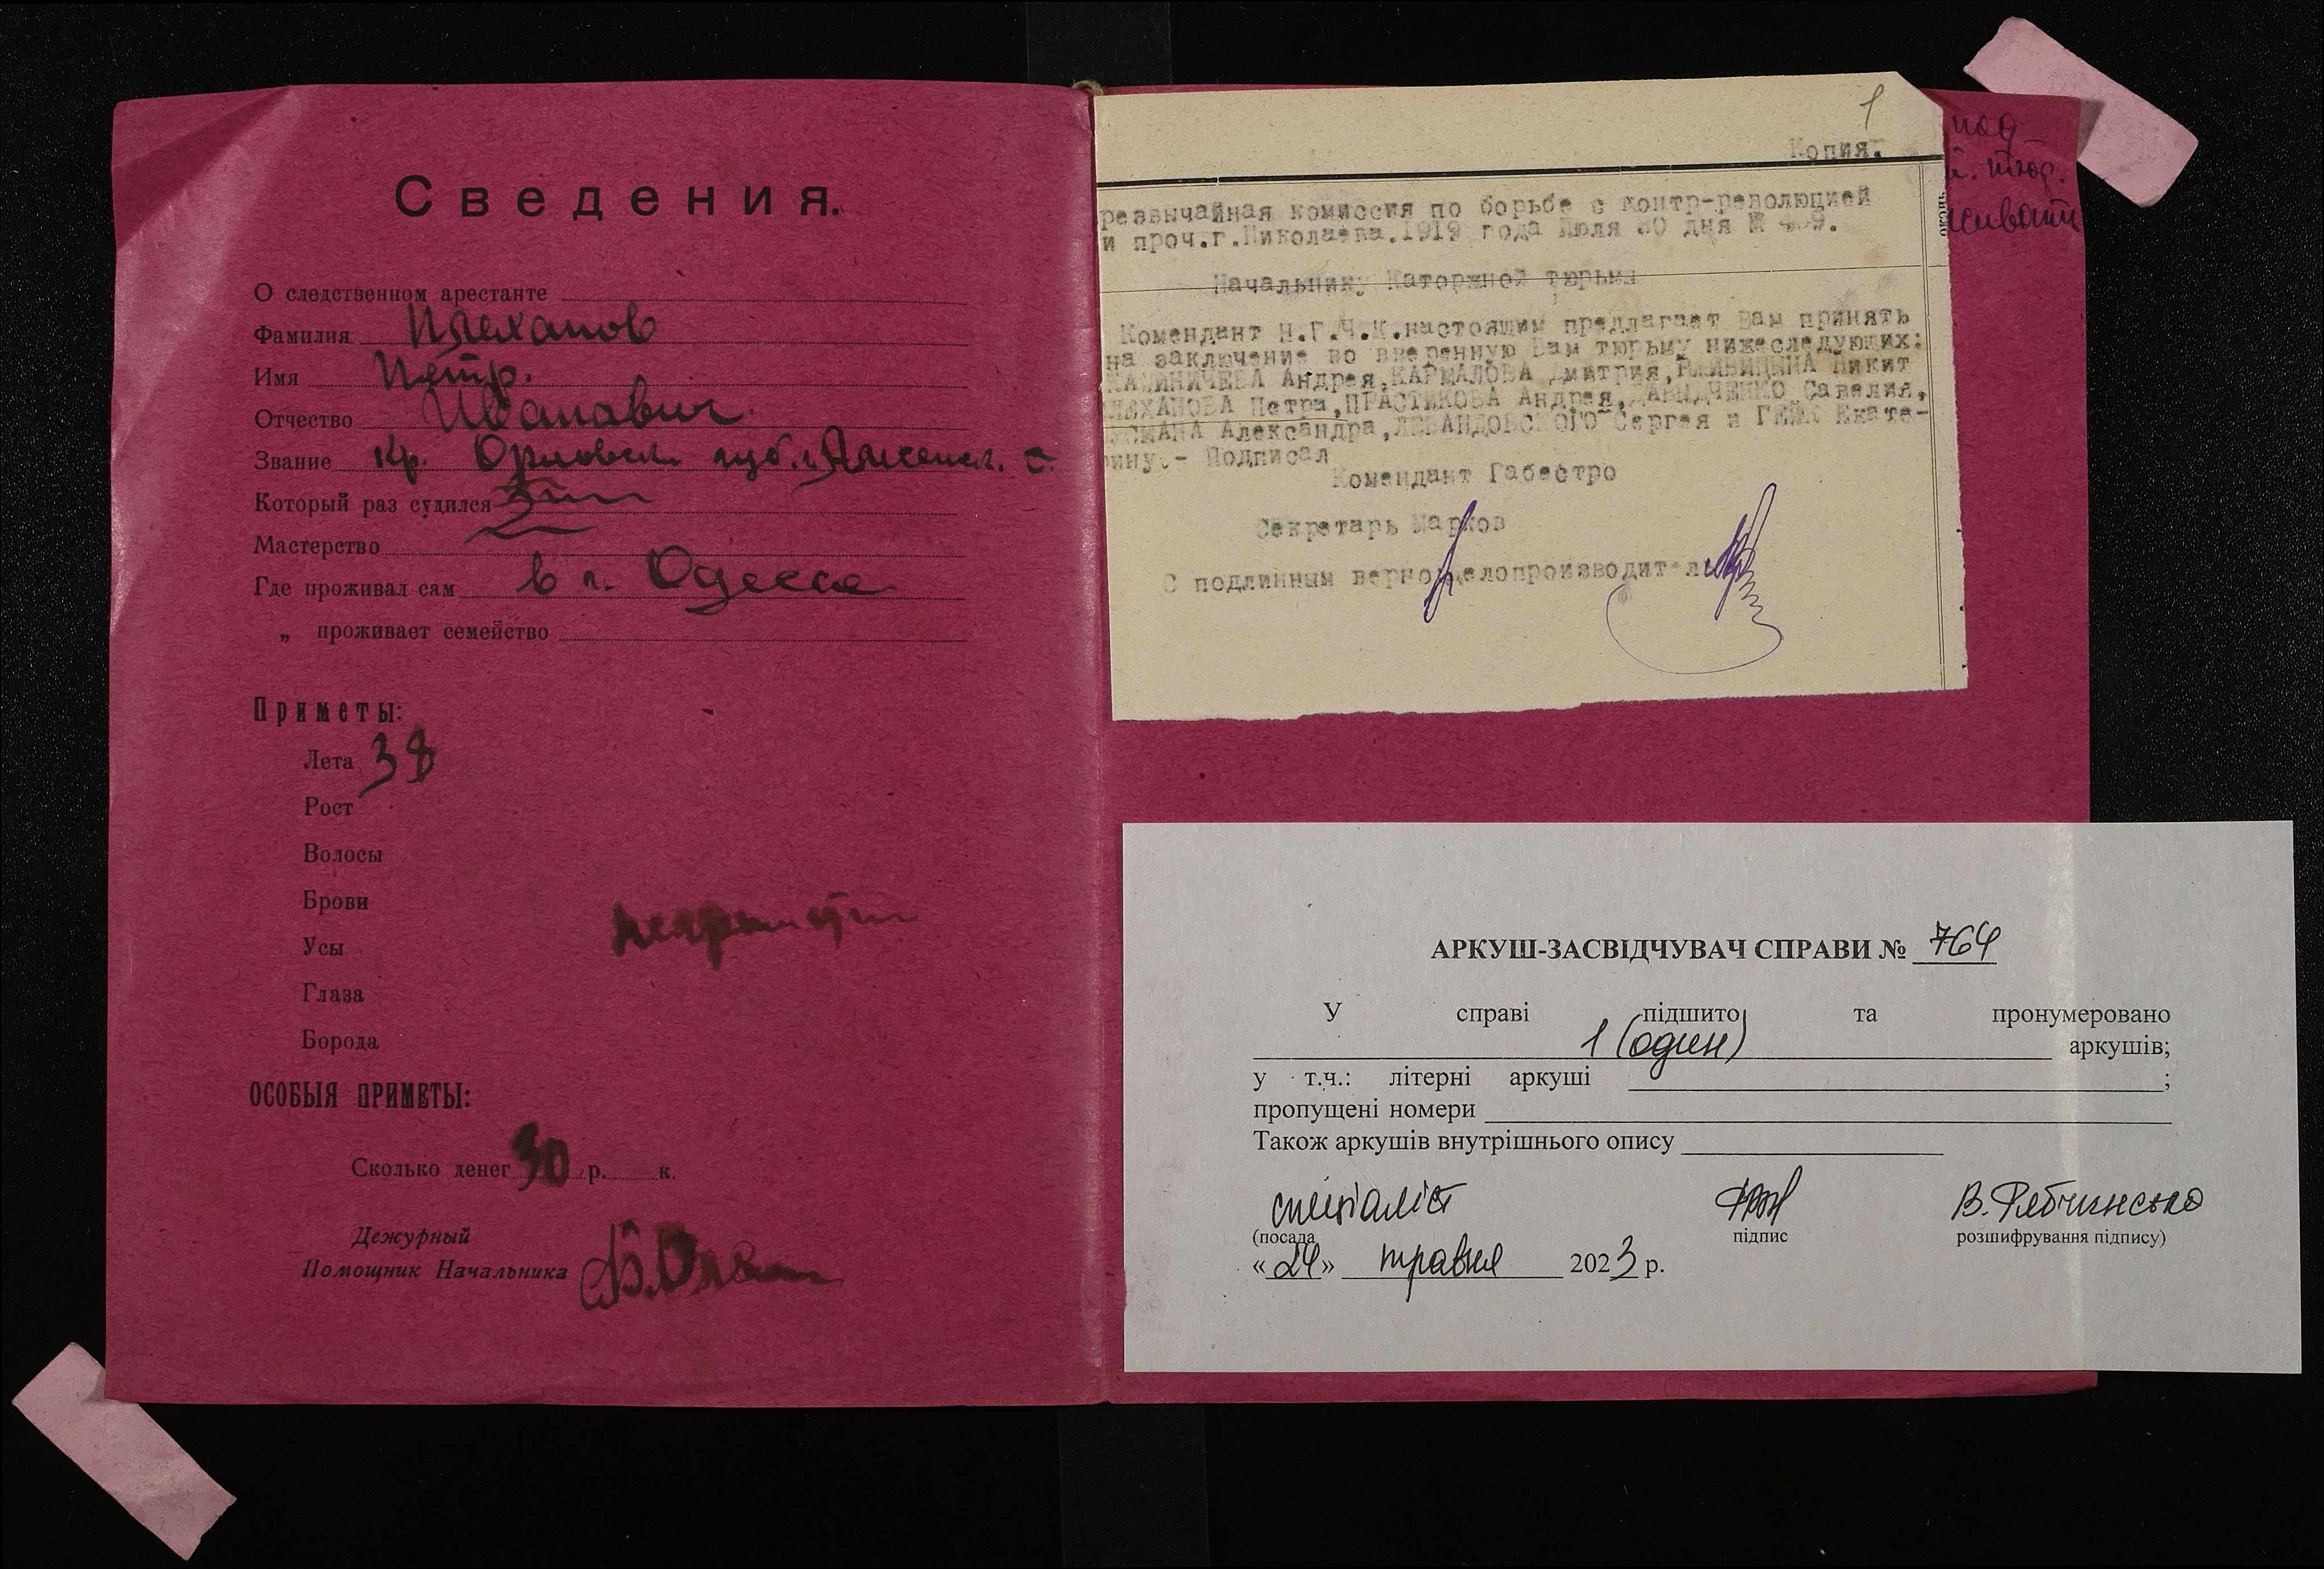 Сведения.
О следственном арестанте
Фамилия Плеханов
Имя Петр.
Отчество Иванович
Звание кр. Орловск. губ.
Который раз судился
Мастерство
Где проживал сам в г. Одесса
„ проживает семейство
Приметы:
Лета 38
Рост
Волосы
Брови
Усы
Глаза
Борода
ОСОБЫЯ ПРИМЕТЫ:
Сколько денег 30 р. к.
Дежурный
Помощник Начальника
1
Копия.
резвычайная комиссия по борьбе с контр-революцией
и проч.г.Николаева.1919 года Июля 30 дня №
Начальнику Каторжной тюрьмы
Комендант Н.Г.Ч.К.настоящим предлагает Вам принять
на заключение во вверенную Вам тюрьму нижеследующих:
КАЛИНИЧЕВА Андрея,КАРМАЛОВА Дмитрия, Никит
ЛЕХАНОВА Петра,ПРАСТИКОВА Андрея,ДАВИДЧЕНКО Савелия,
СМАНА Александра,ЛЕВАНДОВСКОГО Сергея и Екате-
рину.- Подписал
Комендант Габестро
Секретарь Марков
С подлинным верно:Делопроизводитель
под
й. тюр.
АРКУШ-ЗАСВІДЧУВАЧ СПРАВИ № 764
У справі підшито та пронумеровано
1 (один) аркушів;
у т.ч.: літерні аркуші ;
пропущені номери
Також аркушів внутрішнього опису
спеціаліст В. Рябчинсько
(посада підпис розшифрування підпису)
« 24 » травня 2023 р.